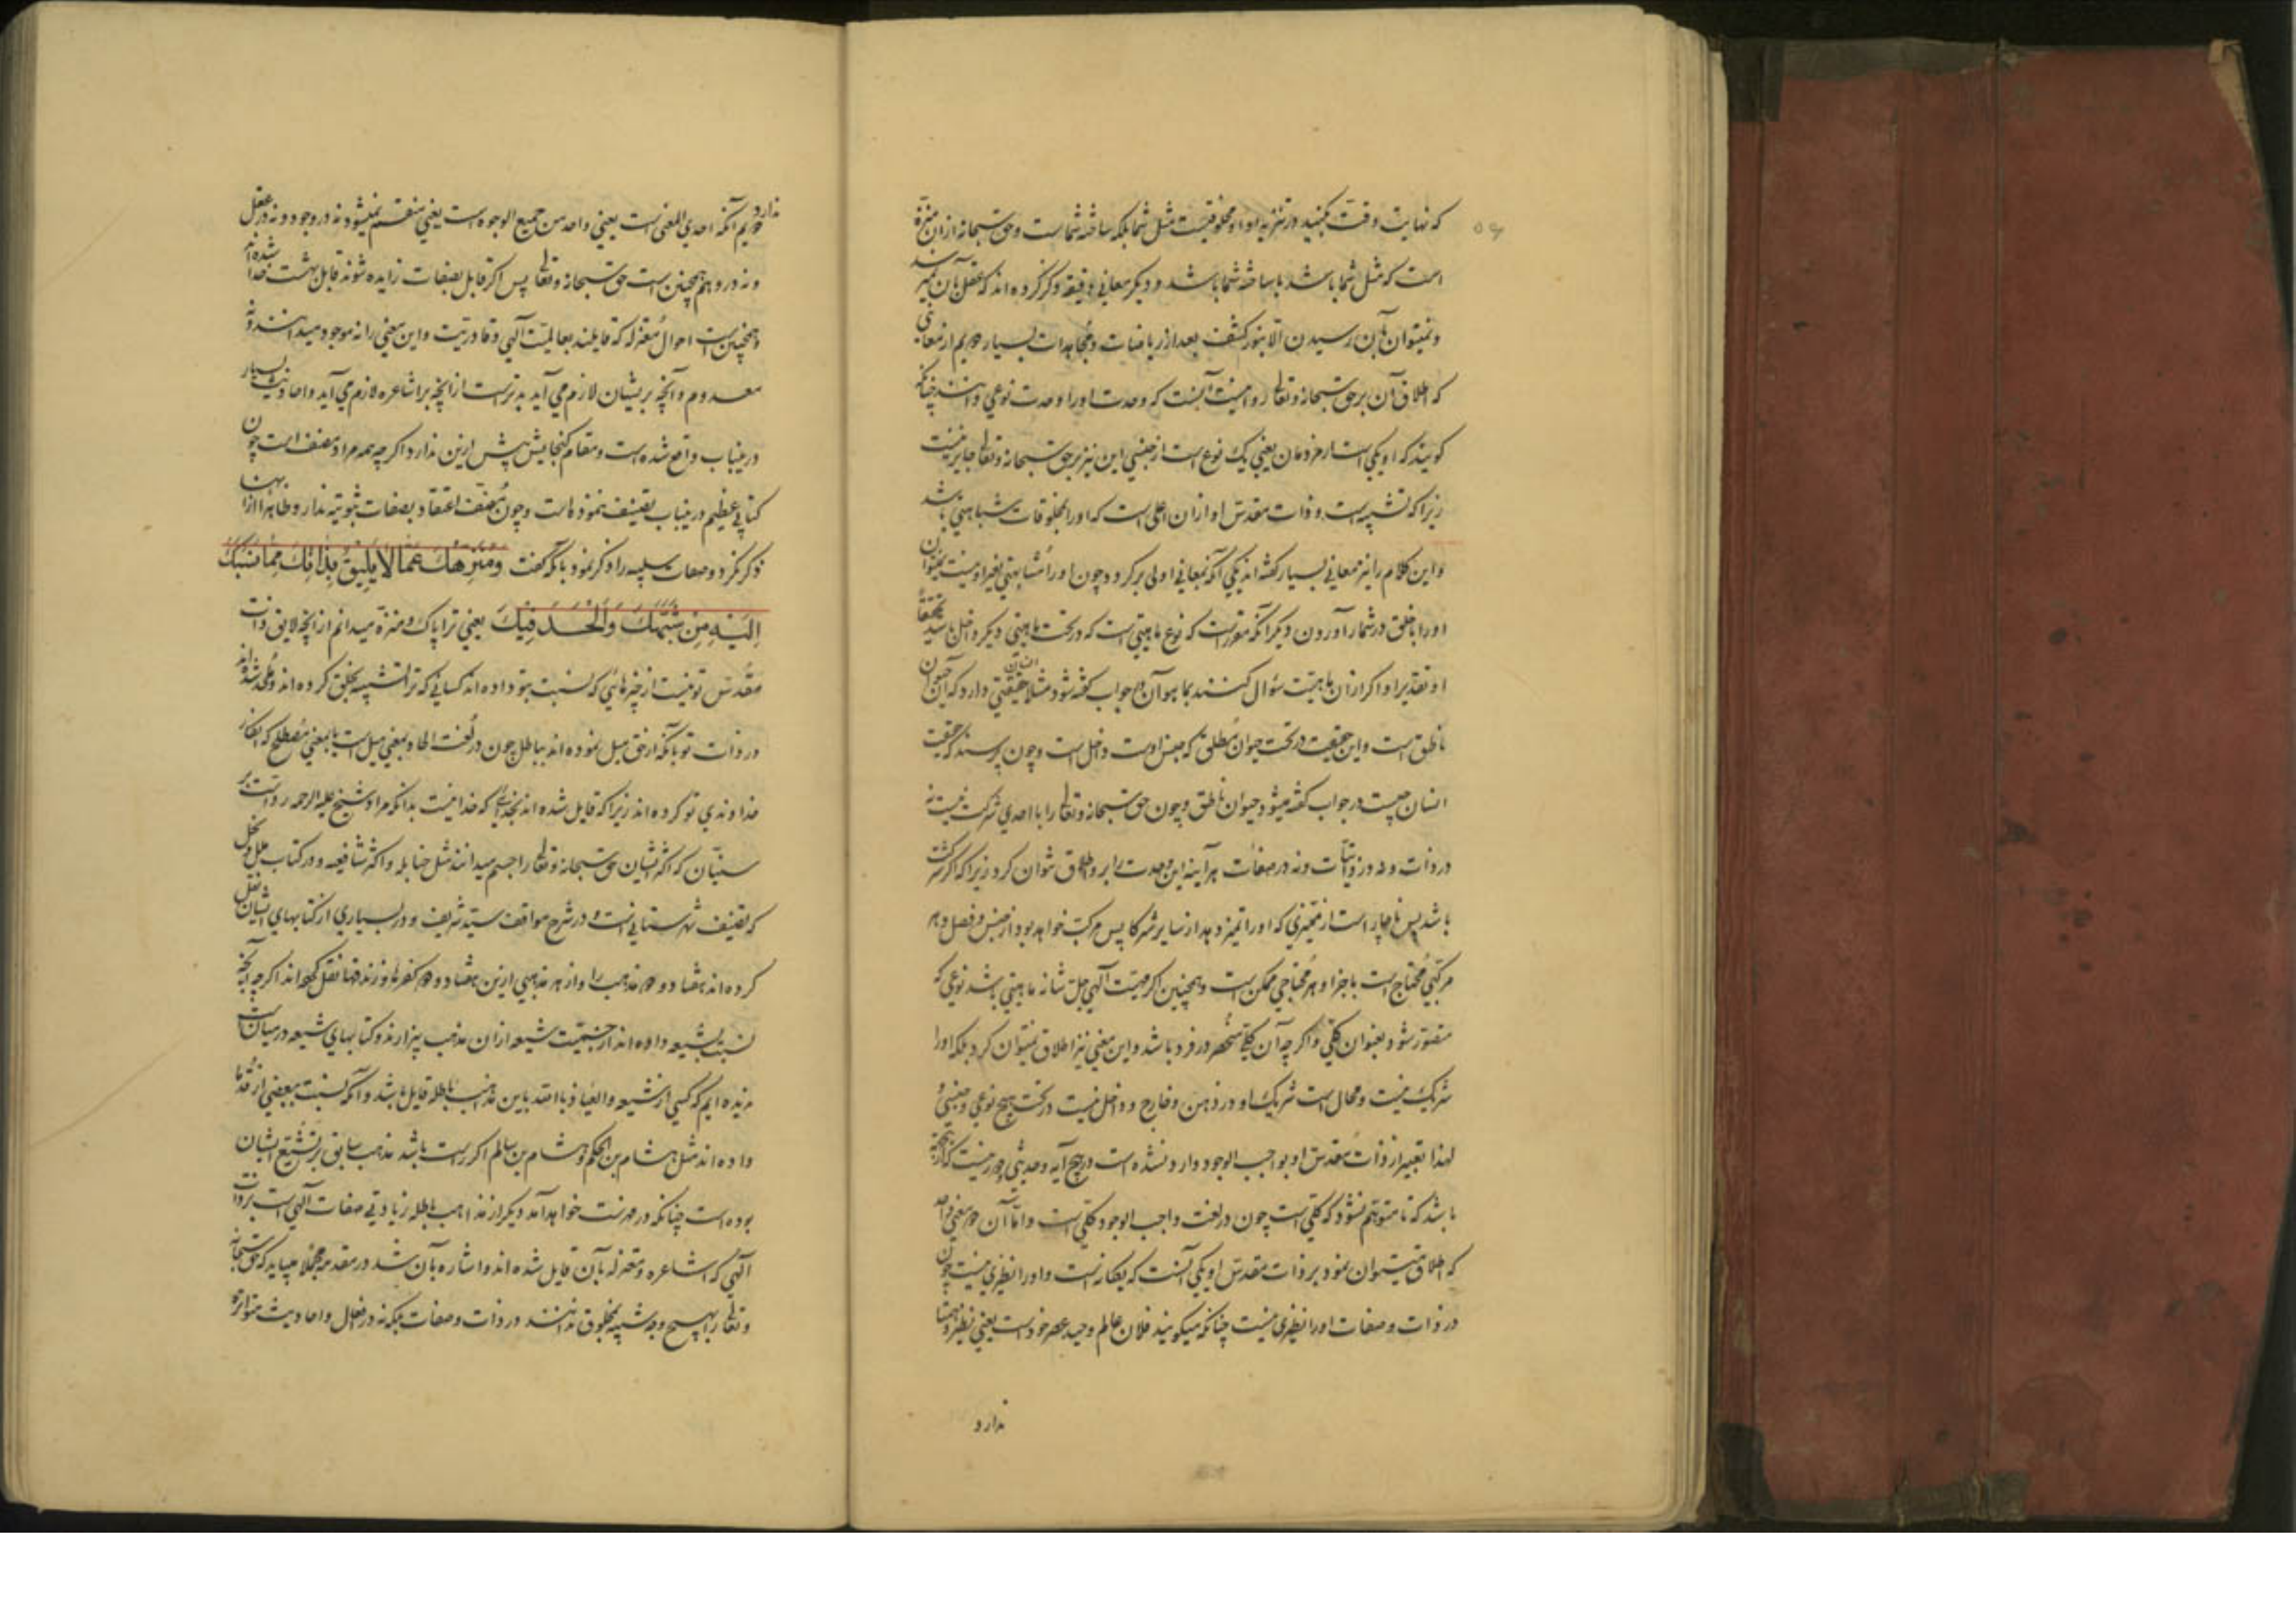 که نهایت دقت بکنید در تنزیه او او مخلوقیست مثل شما بلکه ساخته شماست و حق سبحانه ازان منزه
است که مثل شما باشد یا ساخته شما باشد و دیگر معانی دقیقه ذکر کرده‌اند که عقل بآن نمیرسد
و نمیتوان بآن رسیدن الا بنور کشف بعد از ریاضات و مجاهدات بسیار دویم از معانی
که اطلاق آن بر حق سبحانه و تعالی روا نیست آنست که وحدت او را وحدت نوعی دانند چنانکه
گویند که او یکی است از مردمان یعنی یک نوع است از جنسی این نیز بر حق سبحانه و تعالی جایز نیست
زیرا که تشبیه است و ذات مقدس او ازان اعلی است که او را بمخلوقات شباهتی باشد
و این کلام را نیز معانی بسیار گفته‌اند یکی آنکه بمعانی اولی برگردد چون او را مشابهتی بغیر او نیست نمیتوان
او را با خلق در شمار آوردن دیگر آنکه مقرر است که نوع ماهیتی است که در تحت ماهیتی دیگر داخل باشد
او تقدیرا و اگر ازان ماهیت سؤال کنند بما هو آن در جواب گفته شود مثلا انسان حقیقتی دارد که آن حیوان
ناطق است و این حقیقت در تحت حیوان مطلق که جنس اوست داخل است و چون پرسند که حقیقت
انسان چیست در جواب گفته میشود حیوان ناطق و چون حق سبحانه و تعالی را با احدی شرکت نیست نه
در ذات و نه در ذاتیات و نه در صفات هر آینه این وحدت را بر او اطلاق نتوان کرد زیرا که اگر شرکت
باشد پس ناچار است از ممیزی که او را تمیز دهد از سایر شرکا پس مرکب خواهد بود از جنس و فصل و هر
مرکبی محتاج است باجزا و هر محتاجی ممکن است و همچنین اگر مهیت الهی جل شانه ماهیتی باشد نوعی که
متصور شود بعنوان کلی و اگر چه آن کلی منحصر در فرد باشد و این معنی نیز اطلاق نمیتوان کرد بلکه او را
شریک نیست و محال است شریک او در ذهن و خارج و داخل نیست در تحت هیچ نوعی و جنسی و
لهذا تعبیر از ذات مقدس او بواجب الوجود وارد نشده است در هیچ آیه و حدیثی
باشد که تا متوهم نشود که کلی است چون در لغت واجب الوجود کلی است و اما آن دو معنی
که اطلاق میتوان نمود بر ذات مقدس او یکی آنست که یگانه است و او را نظیری نیست چون
در ذات و صفات او را نظیری نیست چنانکه میگویند فلان عالم وحید عصر خود است یعنی نظیر و همتا
ندارد
ندارد
دویم آنکه احدی المعنی است یعنی واحد من جمیع الوجوه است یعنی منقسم نمیشود نه در وجود و نه در عقل
و نه در وهم همچنین است حق سبحانه و تعالی پس اگر قایل بصفات زایده شوند قایل بهشت خدا شده‌اند
و همچنین است احوال معتزله که قایلند بعالمیت الهی و قادریت و این معنی را نه موجود میدانند و نه
معدوم و آنچه بر یشان لازم می آید بدتر است از آنچه بر اشاعره لازم می آید و احادیث بسیار
درینباب واقع شده است و مقام گنجایش بیش ازین ندارد اگر چه همه مراد مصنف است چون
کتابی عظیم درینباب تصنیف نموده است و چون مصنف اعتقاد بصفات ثبوتیه ندارد ظاهرا
ذکر نکرد و صفات سلبیه را ذکر نمود بآنکه گفت وَمُنَزِّهُكَ عَمَّا لَا يَلِيقُ بِذَاتِكَ مِمَّا نَسَبَكَ
إِلَيْهِ مَنْ شَبَّهَكَ وَأَلْحَدَ فِيكَ یعنی ترا پاک و منزه میدانم از آنچه لایق ذات
مقدس تو نیست از چیزهائی که نسبت بتو داده‌اند کسانی که ترا تشبیه بخلق کرده‌اند و ملحد شده‌اند
در ذات تو بآنکه از حق میل نموده‌اند بباطل چون در لغت الحاد بمعنی میل است یا بمعنی مصطلح که انکار
خداوندی تو کرده‌اند زیرا که قایل شده‌اند بخدایی که خدا نیست بدانکه مراد شیخ علیه الرحمه رد است بر
سنیان که اکثر ایشان حق سبحانه و تعالی را جسم میدانند مثل حنابله و اکثر شافعیه و در کتاب ملل و نحل
که تصنیف شهرستانی است و در شرح مواقف سید شریف و در بسیاری از کتابهای ایشان نقل
کرده‌اند هفتاد و دو مذهب را و از هر مذهبی ازین هفتاد و دو کفرها و زندقها نقل کرده‌اند اگر چه آنچه
نسبت بشیعه داده‌اند شیعه ازان مذهب بیزارند و کتابهای شیعه در میانست
ندیده ایم که کسی از شیعه و العیاذ بالله باین مذهب باطله قایل باشد و آنکه نسبت ببعضی از قدما
داده‌اند مثل هشام بن الحکم و هشام بن سالم اگر راست باشد مذهب سابق بر تشیع ایشان
بوده است چنانکه در فهرست خواهد آمد دیگر از مذاهب باطله زیادتی صفات الهی است بر ذات
الهی که اشاعره و معتزله بآن قایل شده‌اند و اشاره بآن شد در مقدمه مجملا میباید که حق سبحانه
و تعالی را بهیچ وجه شبیه بمخلوق ندانند در ذات و صفات بلکه نه در افعال و احادیث متواتره